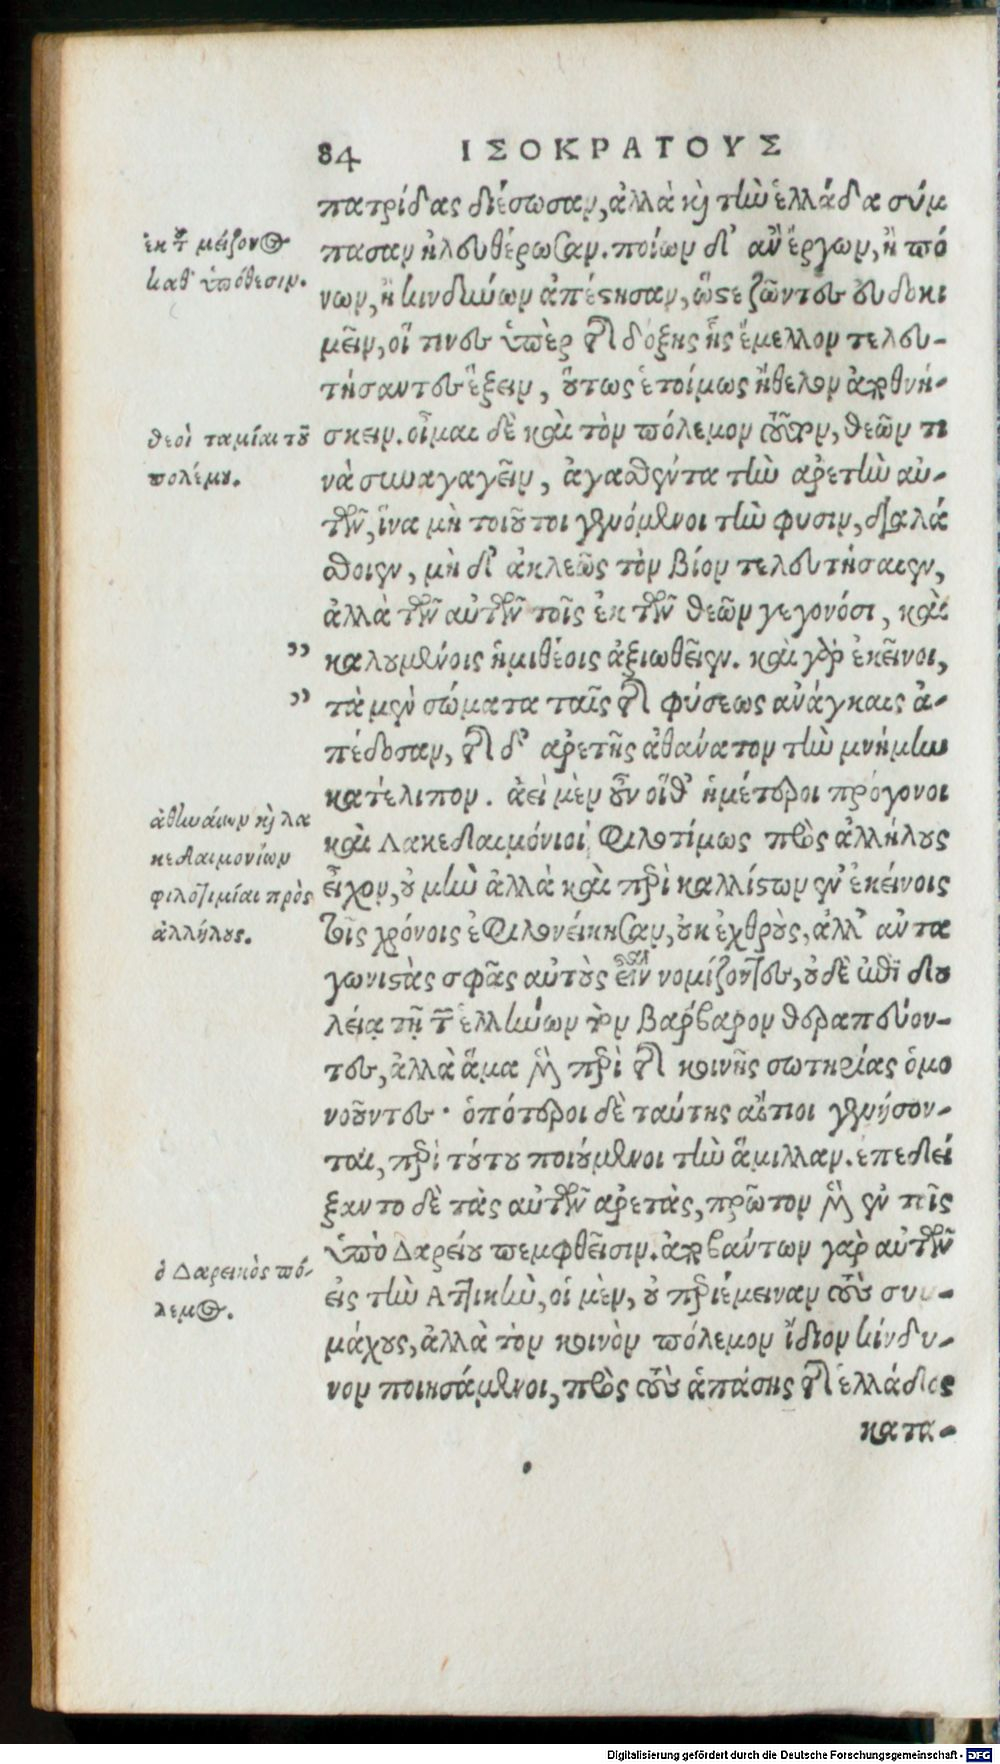 84 ΙΣΟΚΡΑΤΟΥΣ
πατρίδας διέσωσαν, ἀλλὰ καὶ τὴν ἑλλάδα σύμ
πασαν ἠλευθέρωσαν. ποίων δ' ἂν ἔργων, ἢ πό
νων, ἢ κινδύνων ἀπέστησαν, ὥστε ζῶντες εὐδοκι
μεῖν, οἵ τινες ὑπὲρ τῆς δόξης ἧς ἔμελλον τελευ-
τήσαντες ἕξειν, οὕτως ἑτοίμως ἤθελον ἀποθνή-
σκειν. οἶμαι δὲ καὶ τὸν πόλεμον τοῦτον, θεῶν τι
νὰ συναγαγεῖν, ἀγασθέντα τὴν ἀρετὴν αὐ-
τῶν, ἵνα μὴ τοιοῦτοι γενόμενοι τὴν φύσιν, διαλά
θοιεν, μὴ δ' ἀκλεῶς τὸν βίον τελευτήσαιεν,
ἀλλὰ τῶν αὐτῶν τοῖς ἐκ τῶν θεῶν γεγονόσι, καὶ
,, καλουμένοις ἡμιθέοις ἀξιωθεῖεν. καὶ γὰρ ἐκεῖνοι,
,, τὰ μὲν σώματα ταῖς τῆς φύσεως ἀνάγκαις ἀ-
πέδοσαν, τῆς δ' ἀρετῆς ἀθάνατον τὴν μνήμην
κατέλιπον. ἀεὶ μὲν οὖν οἵθ' ἡμέτεροι πρόγονοι
καὶ Λακεδαιμόνιοι φιλοτίμως πρὸς ἀλλήλους
εἶχον, οὐ μὴν ἀλλὰ καὶ περὶ καλλίστων ἐν ἐκείνοις
τοῖς χρόνοις ἐφιλονείκησαν, οὐκ ἐχθροὺς, ἀλλ' ἀντα
γωνιστὰς σφᾶς αὐτοὺς εἶναι νομίζοντες, οὐδὲ ἐπὶ δου
λείᾳ τῇ τῶν ἑλλήνων τὸν βάρβαρον θεραπεύον-
τες, ἀλλὰ ἅμα μὲν περὶ τῆς κοινῆς σωτηρίας ὁμο
νοοῦντες· ὁπότεροι δὲ ταύτης αἴτιοι γενήσον-
ται, περὶ τούτου ποιούμενοι τὴν ἅμιλλαν. ἐπεδεί
ξαντο δὲ τὰς αὑτῶν ἀρετὰς, πρῶτον μὲν ἐν τοῖς
ὑπὸ Δαρείου πεμφθεῖσιν. ἀποβάντων γὰρ αὐτῶν
εἰς τὴν Ἀττικὴν, οἱ μὲν, οὐ περιέμειναν τοὺς συμ-
μάχους, ἀλλὰ τὸν κοινὸν πόλεμον ἴδιον κίνδυ-
νον ποιησάμενοι, πρὸς τοὺς ἁπάσης τῆς ἑλλάδος
κατα-
ἐκ τοῦ μείζονος
καθ' ὑπόθεσιν.
θεοὶ ταμίαι τοῦ
πολέμου.
ἀθηναίων καὶ λα
κεδαιμονίων
φιλοτιμίαι πρὸς
ἀλλήλους.
ὁ Δαρεικὸς πό-
λεμος.
Digitalisierung gefördert durch die Deutsche Forschungsgemeinschaft - DFG